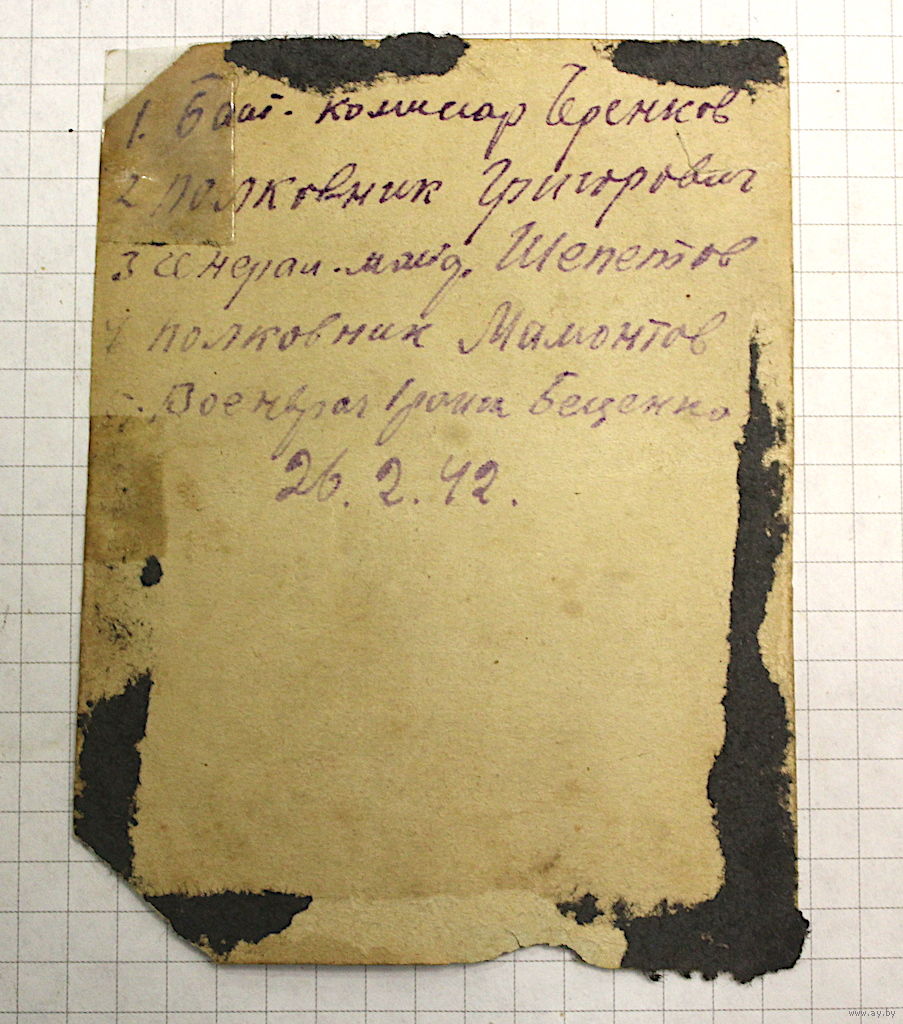 1. Бат. комиссар Еренков
2 полковник Григорович
3 Генерал-майор. Шепетов
4 полковник Мамонтов
5. Военврач 1 ранга Бещенко
26. 2. 42.
www.ay.by